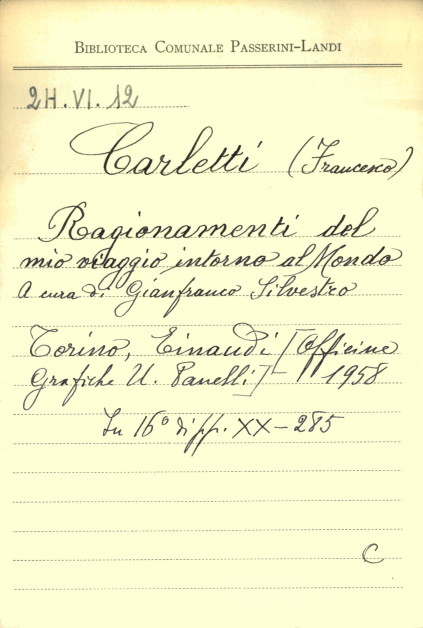 BIBLIOTECA COMUNALE PASSERINI-LANDI
2H.VI.12
Carletti (Francesco)
Ragionamenti del
mio viaggio intorno al Mondo
A cura di Gianfranco Silvestro
Torino, Einaudi [Officine
Grafiche U. Panelli] - 1958
In 16° di pp. XX-285
C